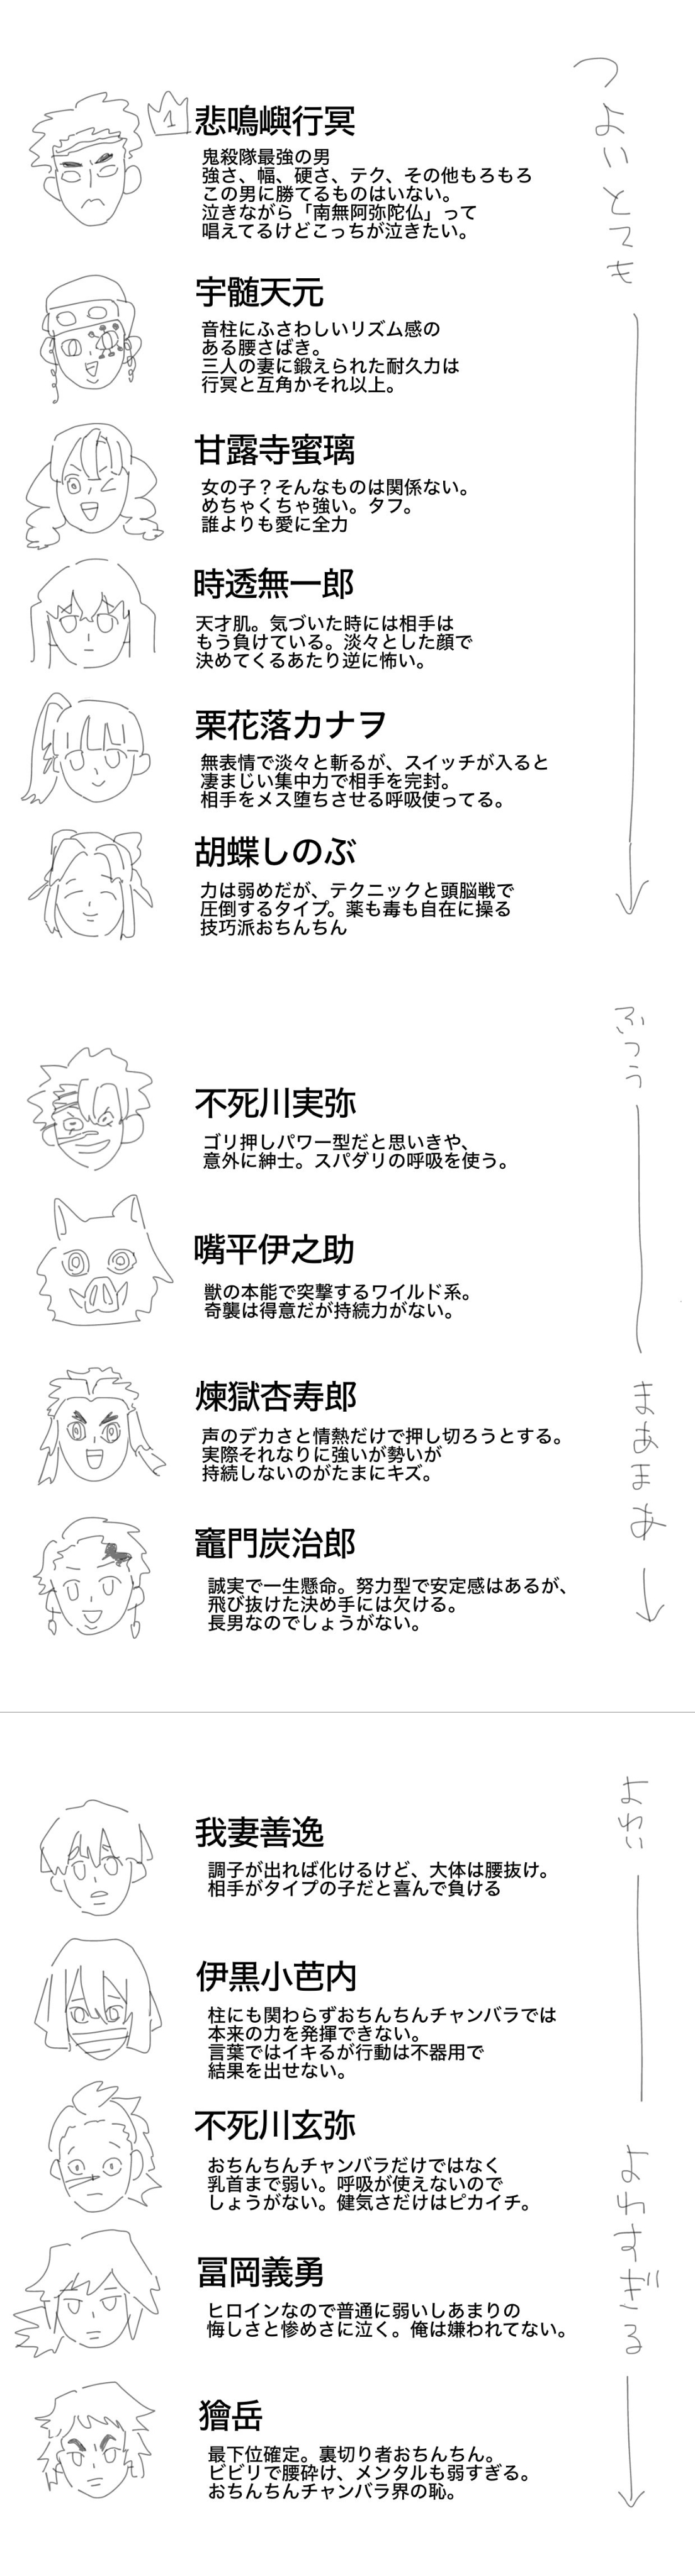 つよいとても
1
悲鳴嶼行冥
鬼殺隊最強の男
強さ、幅、硬さ、テク、その他もろもろ
この男に勝てるものはいない。
泣きながら「南無阿弥陀仏」って
唱えてるけどこっちが泣きたい。
宇髄天元
音柱にふさわしいリズム感の
ある腰さばき。
三人の妻に鍛えられた耐久力は
行冥と互角かそれ以上。
甘露寺蜜璃
女の子？そんなものは関係ない。
めちゃくちゃ強い。タフ。
誰よりも愛に全力
時透無一郎
天才肌。気づいた時には相手は
もう負けている。淡々とした顔で
決めてくるあたり逆に怖い。
栗花落カナヲ
無表情で淡々と斬るが、スイッチが入ると
凄まじい集中力で相手を完封。
相手をメス堕ちさせる呼吸使ってる。
胡蝶しのぶ
力は弱めだが、テクニックと頭脳戦で
圧倒するタイプ。薬も毒も自在に操る
技巧派おちんちん
ふつう
不死川実弥
ゴリ押しパワー型だと思いきや、
意外に紳士。スパダリの呼吸を使う。
嘴平伊之助
獣の本能で突撃するワイルド系。
奇襲は得意だが持続力がない。
まあまあ
煉獄杏寿郎
声のデカさと情熱だけで押し切ろうとする。
実際それなりに強いが勢いが
持続しないのがたまにキズ。
竈門炭治郎
誠実で一生懸命。努力型で安定感はあるが、
飛び抜けた決め手には欠ける。
長男なのでしょうがない。
よわい
我妻善逸
調子が出れば化けるけど、大体は腰抜け。
相手がタイプの子だと喜んで負ける
伊黒小芭内
柱にも関わらずおちんちんチャンバラでは
本来の力を発揮できない。
言葉ではイキるが行動は不器用で
結果を出せない。
不死川玄弥
おちんちんチャンバラだけではなく
乳首まで弱い。呼吸が使えないので
しょうがない。健気さだけはピカイチ。
よわすぎる
冨岡義勇
ヒロインなので普通に弱いしあまりの
悔しさと惨めさに泣く。俺は嫌われてない。
獪岳
最下位確定。裏切り者おちんちん。
ビビリで腰砕け、メンタルも弱すぎる。
おちんちんチャンバラ界の恥。